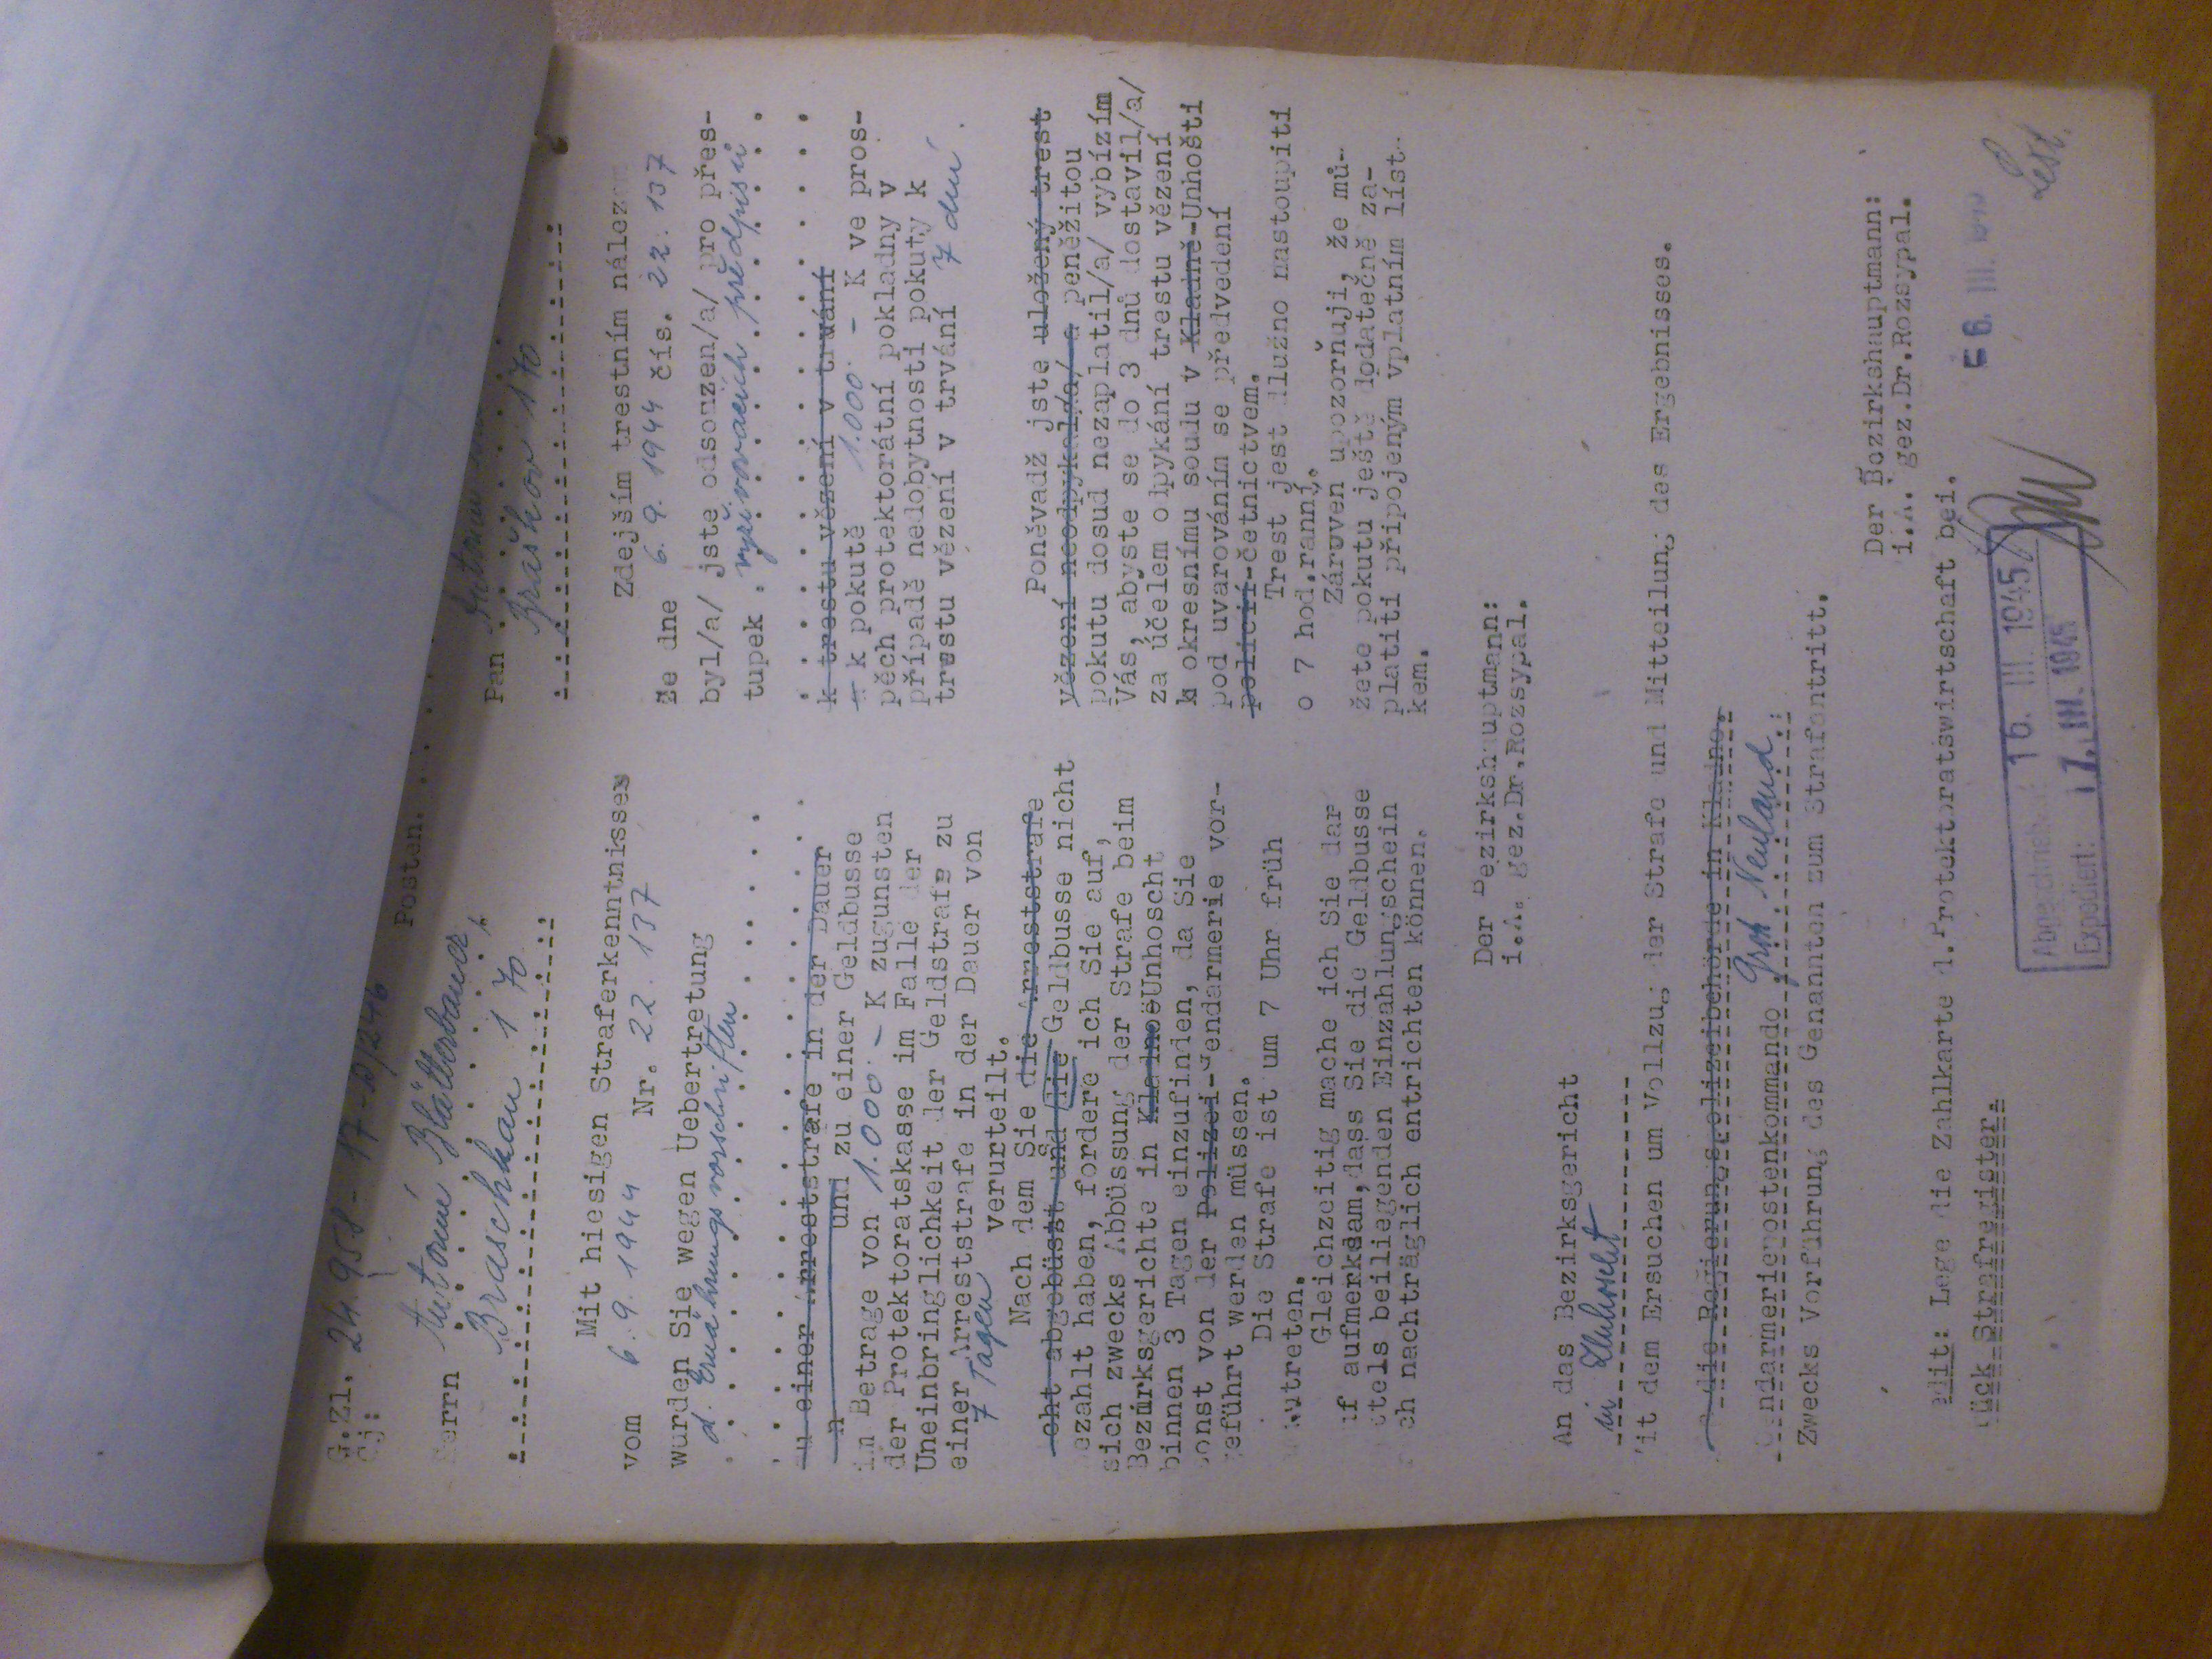 G.Zl. 24.958 - 17-D/246
Čj:
Posten. . . . . .
Herrn Antonín Blätterbauer,
Braschkau 170
Mit hiesigen Straferkenntnisses
vom 6.9.1944 Nr. 22.137
wurden Sie wegen Uebertretung
d. Ernährungsvorschriften
zu einer Arreststrafe in der Dauer
und zu einer Geldbusse
im Betrage von 1.000.- K zugunsten
der Protektoratskasse im Falle der
Uneinbringlichkeit der Geldstrafe zu
einer Arreststrafe in der Dauer von
7 Tagen verurteilt.
Nach dem Sie die Arreststrafe
cht abgebüsst und die Geldbusse nicht
ezahlt haben, fordere ich Sie auf,
sich zwecks Abbüssung der Strafe beim
Bezirksgerichte in Kladno-Unhoscht
binnen 3 Tagen einzufinden, da Sie
sonst von der Polizei-Gendarmerie vor-
geführt werden müssen.
Die Strafe ist um 7 Uhr früh
utreten.
Gleichzeitig mache ich Sie dar
uf aufmerksam, dass Sie die Geldbusse
ttels beiliegenden Einzahlungschein
ch nachträglich entrichten können.
Pan Antonín
Braškov 170
Zdejším trestním nálezem
Ze dne 6.9.1944 čís. 22.137
byl/a/ jste odsouzen/a/ pro přes-
tupek vyživovacích předpisů
k trestu vězení v trvání
a k pokutě 1.000.- K ve pros-
pěch protektorátní pokladny v
případě nedobytnosti pokuty k
trestu vězení v trvání 7 dní.
Poněvadž jste uložený trest
vězení neodpykal/a/ a peněžitou
pokutu dosud nezaplatil/a/ vybízím
Vás, abyste se do 3 dnů dostavil/a/
za účelem odpykání trestu vězení
k okresnímu soudu v Kladně-Unhošti
pod uvarováním se předvedení
policií-četnictvem.
Trest jest dlužno nastoupiti
o 7 hod.ranní.
Zároven upozorňuji, že mů-
žete pokutu ještě dodatečně za-
platiti připojeným vplatním líst-
kem.
Der Bezirkshauptmann:
i.A. gez.Dr.Rozsypal.
An das Bezirksgericht
in Unhoscht
Mit dem Ersuchen um Vollzug der Strafe und Mitteilung des Ergebnisses.
die Regierungspolizeibehörde in Kladno.
Gendarmeriepostenkommando Gross Neuland
Zwecks Vorführung des Genannten zum Strafantritt.
Der Bezirkshauptmann:
i.A. gez.Dr.Rozsypal.
edit: Lege die Zahlkarte d.Protektoratswirtschaft bei.
rück Strafregister.
6. III.
Abgeschrieben: 16. III. 1945
Expediert: 17. III. 1945